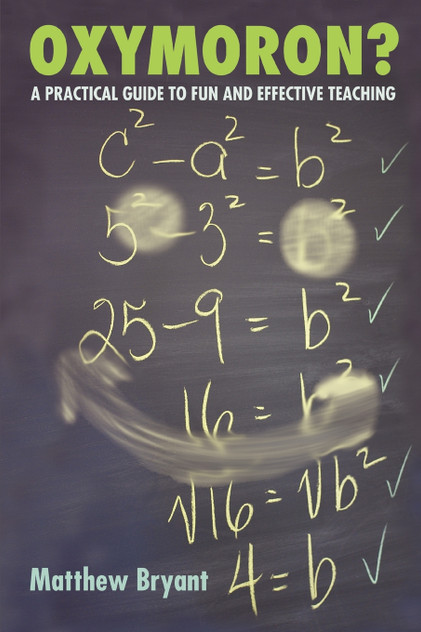 OXYMORON?
A PRACTICAL GUIDE TO FUN AND EFFECTIVE TEACHING
c² − a² = b² ✓
5² − 3² = b² ✓
25 − 9 = b² ✓
16 = b² ✓
√16 = √b² ✓
4 = b ✓
Matthew Bryant